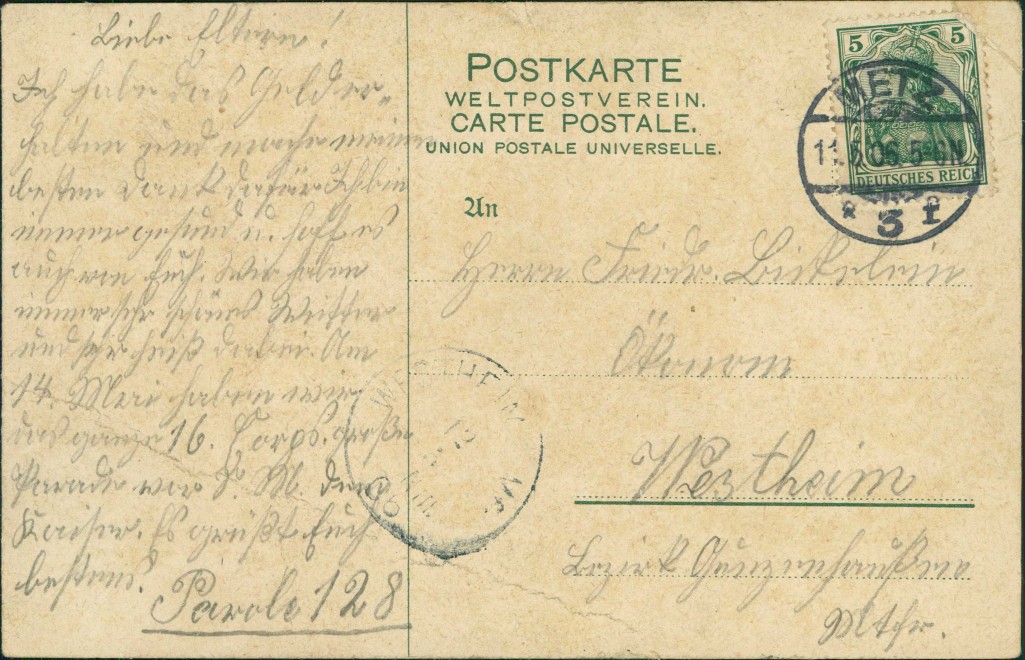 Liebe Eltern!
Ich habe das Geld er-
halten und mache meinen
besten Dank dafür Ich bin
immer gesund u. hoff es
auch von Euch. Wir haben
immer sehr schönes Wetter
und sehr heiß dabei. Am
14. Mai haben wir
das ganze 16. Corps. große
Parade vor S. M dem
Kaiser. Es grüßt Euch
bestens.
Parole 128
POSTKARTE
WELTPOSTVEREIN.
CARTE POSTALE.
UNION POSTALE UNIVERSELLE.
5 5
DEUTSCHES REICH
METZ
11.5.06 5-6N
* 3 f
An
Herrn Friedr.
Ökonom
Westheim
Bezirk Gunzenhaußen
Mfr.
WESTHEIM
12